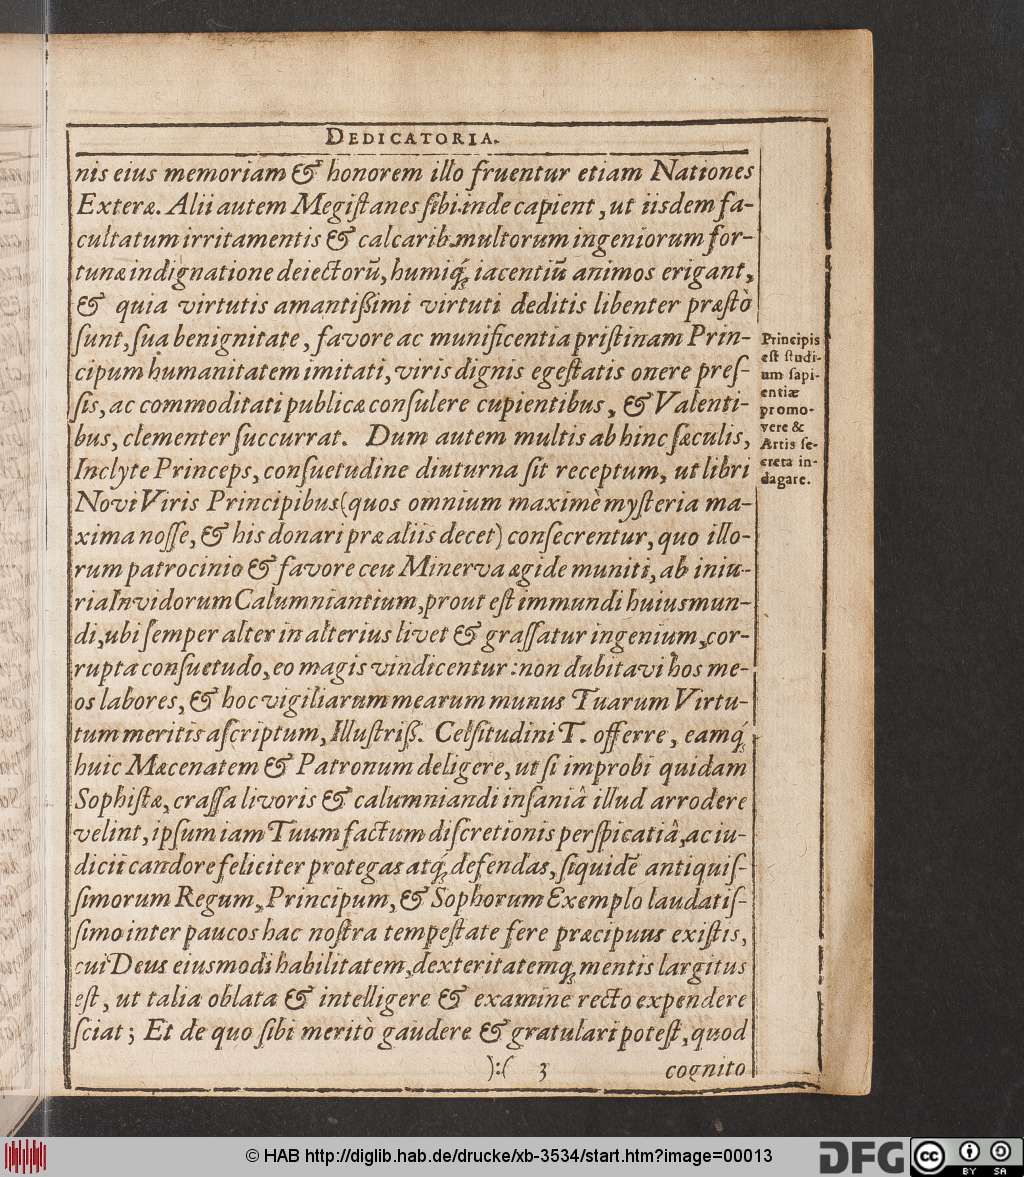 DEDICATORIA.
nis eius memoriam & honorem illo fruentur etiam Nationes
Exteræ. Alii autem Megiſtanes ſibi inde capient, ut iisdem fa-
cultatum irritamentis & calcarib. multorum ingeniorum for-
tunæ indignatione deiectorū, humiq́; iacentiū animos erigant,
& quia virtutis amantißimi virtuti deditis libenter præſtò
ſunt, ſua benignitate, favore ac munificentia priſtinam Prin-
cipum humanitatem imitati, viris dignis egeſtatis onere preſ-
ſis, ac commoditati publicæ conſulere cupientibus, & Valenti-
bus, clementer ſuccurrat. Dum autem multis ab hinc ſæculis,
Inclyte Princeps, conſuetudine diuturna ſit receptum, ut libri
Novi Viris Principibus (quos omnium maximè myſteria ma-
xima noſſe, & his donari præ aliis decet) conſecrentur, quo illo-
rum patrocinio & favore ceu Minervæ ægide muniti, ab iniu-
ria Invidorum Calumniantium, prout eſt immundi huius mun-
di, ubi ſemper alter in alterius livet & graſſatur ingenium, cor-
rupta conſuetudo, eo magis vindicentur: non dubitavi hos me-
os labores, & hoc vigiliarum mearum munus Tuarum Virtu-
tum meritis aſcriptum, Illuſtriß. Celſitudini T. offerre, eamq́;
huic Mæcenatem & Patronum deligere, ut ſi improbi quidam
Sophiſtæ, craſſa livoris & calumniandi inſaniâ illud arrodere
velint, ipſum iam Tuum factum diſcretionis perſpicatiâ, ac iu-
dicii candore feliciter protegas atq́; defendas, ſiquidē antiquiſ-
ſimorum Regum, Principum, & Sophorum Exemplo laudatiſ-
ſimo inter paucos hac noſtra tempeſtate fere præcipuus exiſtis,
cui Deus eiusmodi habilitatem, dexteritatemq; mentis largitus
eſt, ut talia oblata & intelligere & examine recto expendere
ſciat; Et de quo ſibi meritò gaudere & gratulari poteſt, quod
):( 3 cognito
Principis
eſt ſtudi-
um ſapi-
entiæ
promo-
vere &
Artis ſe-
creta in-
dagare.
© HAB http://diglib.hab.de/drucke/xb-3534/start.htm?image=00013
DFG
cc BY SA